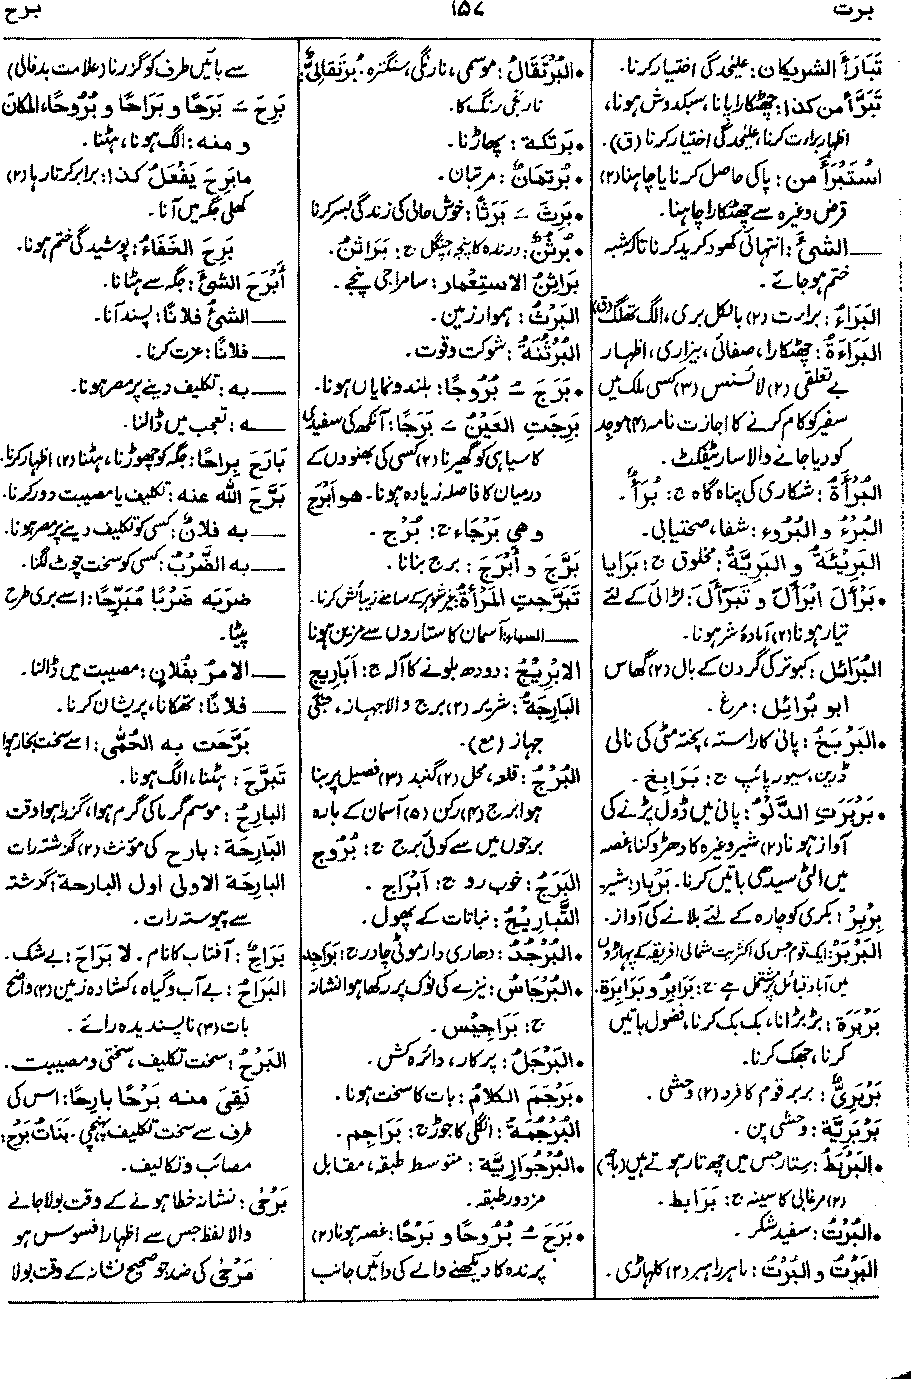 برت
۱۵۷
برح
تَبَارَأَ الشریکان: علیحدگی اختیار کرنا۔
تَبَرَّأَ من کذا: چھٹکارا پانا، سبکدوش ہونا،
اظہار براءت کرنا، علیحدگی اختیار کرنا (ق)۔
اسْتَبْرَأَ من: پاکی حاصل کرنا یا چاہنا (۲)
قرض وغیرہ سے چھٹکارا چاہنا۔
ــــ الشئَ: انتہائی کھود کرید کرنا تاکہ شبہ
ختم ہو جائے۔
البَرَاءُ: براءت (۲) بالکل بری، الگ تھلگ (ق)
البَرَاءَةُ: چھٹکارا، صفائی، بیزاری، اظہار
بے تعلقی (۲) لائسنس (۳) کسی ملک میں
سفیر کو کام کرنے کا اجازت نامہ (۴) موجد
کو دیا جانے والا سارٹیفکٹ۔
البُرْأَةُ: شکاری کی پناہ گاہ ج: بُرَأٌ۔
البُرْءُ و البُرُوء: شفا، صحتیابی۔
البَرِیْئَةُ و البَرِیَّةُ: مخلوق ج: بَرَایا
• بَرْأَلَ ابْرَأَلَّ و تَبَرْأَلَ: لڑائی کے لئے
تیار ہونا (۲) آمادۂ شر ہونا۔
البُرَائِل: کبوتر کی گردن کے بال (۲) گھاس
ابو بُرَائِل: مرغ۔
• البَرْبَخُ: پانی کا راستہ، پختہ مٹی کی نالی
ڈرین، سیور پائپ ج: بَرَابِخ۔
• بَرْبَرَتِ الدَّلْوُ: پانی میں ڈول پڑنے کی
آواز ہونا (۲) شیر وغیرہ کا دھڑوکنا: غصہ
میں الٹی سیدھی باتیں کرنا۔ بَرْبار: شیر
بِرْبِرْ: بکری کو چارہ کے لئے بلانے کی آواز۔
البَرْبَرُ: ایک قوم جس کی اکثریت شمالی افریقہ کے پہاڑوں
میں آباد قبائل پر مشتمل ہے ج: بَرَابِرُ و بَرَابِرَة۔
بَرْبَرَة: بڑبڑانا، بک بک کرنا، فضول باتیں
کرنا، جھک کرنا۔
بَرْبَرِیٌّ: بربر قوم کا فرد (۲) وحشی۔
بَرْبَرِیَّة: وحشی پن۔
• البَرْبَطُ: ستار جس میں چھ تار ہوتے ہیں
(۲) مرغابی کا سینہ ج: بَرَابِط۔
• البِرْتُ: سفید شکر۔
البَرْتُ و البُرْتُ: ماہر راہبر (۲) کلہاڑی۔
• البُرْتُقَالُ: موسمی، نارنگی، سنگترہ۔ بُرْتُقالیٌّ:
نارنجی رنگ کا۔
• بَرْتَكَة: پھاڑنا۔
• بُرْتمان: مرتبان۔
• بَرِثَ ــَ بَرَثًا: خوش حالی کی زندگی بسر کرنا
• بُرْثُنٌ: درندہ کا پنجہ، چنگل ج: بَرَاثنُ۔
بَرَاثِنُ الاستِعْمَار: سامراجی پنجے۔
البَرْثُ: ہموار زمین۔
البُرْثُنَةُ: شوکت و قوت۔
• بَرَجَ ــُ بُرُوجًا: بلند و نمایاں ہونا۔
بَرِجَتِ العَیْنُ ــَ بَرَجًا: آنکھ کی سفیدی
کا سیاہی کو گھیرنا (۲) کسی کی بھنووں کے
درمیان کا فاصلہ زیادہ ہونا۔ هو أَبْرَج
وهی بَرْجَاء ج: بُرْج۔
بَرَّجَ و أَبْرَجَ: برج بنانا۔
تَبَرَّجَتِ المَرْأَةُ: غیر شوہر کے سامنے زیبائش کرنا۔
ــــ السماءُ: آسمان کا ستاروں سے مزین ہونا
الابْرِیْجُ: دودھ بلونے کا آلہ ج: اَبَارِیج
البَارِجَةُ: شریر (۲) برج والا جہاز، جنگی
جہاز (مع)۔
البُرْجُ: قلعہ، محل (۲) گنبد (۳) فصیل پر بنا
ہوا برج (۴) رکن (۵) آسمان کے بارہ
برجوں میں سے کوئی برج ج: بُرُوج
البَرَجُ: خوب رو ج: أَبْرَاج۔
التَّبارِیْجُ: نباتات کے پھول۔
• البُرْجُدُ: دھاری دار موٹی چادر ج: بَرَاجِد
• البُرْجَاسُ: نیزے کی نوک پر رکھا ہوا نشانہ
ج: بَرَاجِیْس۔
• البَرْجَلُ: پرکار، دائرہ کش۔
• بَرْجَمَ الكلامُ: بات کا سخت ہونا۔
البُرْجُمَةُ: انگلی کا جوڑ ج: بَرَاجِم۔
• البُرْجُوَازِیَّة: متوسط طبقہ، مقابل
مزدور طبقہ۔
• بَرَحَ ــُ بُرُوحًا و بَرْحًا: غصہ ہونا (۲)
پرندہ کا دیکھنے والے کی دائیں جانب
سے بائیں طرف کو گزرنا (علامت بدفالی)
بَرِحَ ــَ بَرَحًا و بَرَاحًا و بُرُوحًا، المکانَ
و منه: الگ ہونا، ہٹنا۔
مابَرِحَ یَفْعَلُ كذا: برابر کرتا رہا (۲)
کھلی جگہ میں آنا۔
بَرِحَ الخَفَاءُ: پوشیدگی ختم ہونا۔
أَبْرَحَ الشئَ: جگہ سے ہٹانا۔
ــــ الشئُ فلانًا: پسند آنا۔
ــــ فلانًا: عزت کرنا۔
ــــ به: تکلیف دینے پر مصر ہونا۔
ــــ ه: تعجب میں ڈالنا۔
بَارَحَ بِراحًا: جگہ کو چھوڑنا، ہٹنا (۲) اظہار کرنا۔
بَرَّحَ الله عنه: تکلیف یا مصیبت دور کرنا۔
ــــ به فلانٌ: کسی کو تکلیف دینے پر مصر ہونا۔
ــــ به الضَّرْبُ: کسی کو سخت چوٹ لگنا۔
ضربَه ضَرْبًا مُبَرِّحًا: اسے بری طرح
پیٹا۔
ــــ الامرُ بفُلان: مصیبت میں ڈالنا۔
ــــ فلانًا: تھکانا، پریشان کرنا۔
بَرَّحَت به الحُمّٰی: اسے سخت بخار ہوا
تَبَرَّحَ: ہٹنا، الگ ہونا۔
البارِحُ: موسم گرما کی گرم ہوا، گزرا ہوا وقت
البَارِحَة: بارح کی مؤنث (۲) گذشتہ رات
البارِحَة الاولی اول البارحة: گذشتہ
سے پیوستہ رات۔
بَرَاحٌ: آفتاب کا نام۔ لا بَرَاحَ: بے شک۔
البَرَاحُ: بے آب و گیاہ، کشادہ زمین (۲) واضح
بات (۳) ناپسندیدہ رائے۔
البَرْحُ: سخت تکلیف، سختی و مصیبت۔
لَقِیَ منه بَرْحًا بارِحًا: اس کی
طرف سے سخت تکلیف پہنچی۔ بَنَاتُ بَرْحٍ:
مصائب و تکالیف۔
بَرْحٰی: نشانہ خطا ہونے کے وقت بولا جانے
والا لفظ جس سے اظہار افسوس ہو
مَرْحٰی کی ضد جو صحیح نشانہ کے وقت بولا